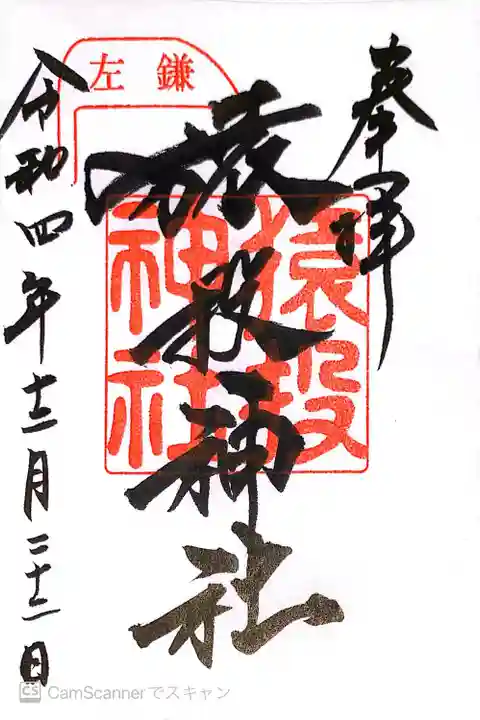 奉拝
猿投神社
猿投
神社
左鎌
令和四年十二月二十二日
CamScannerでスキャン